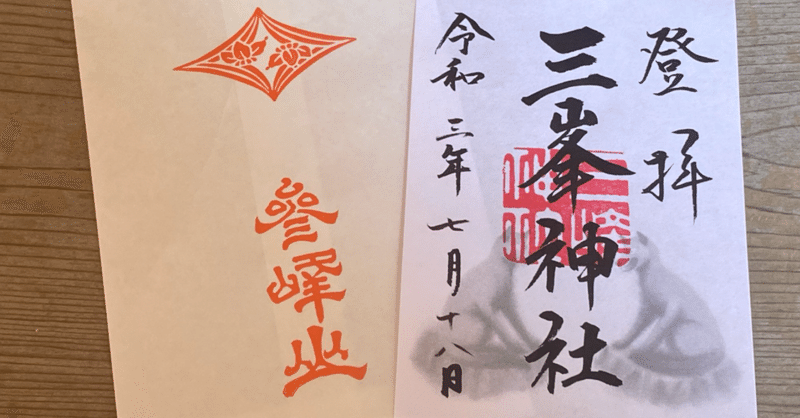 登拝
三峯神社
令和三年七月十八日
參峰山